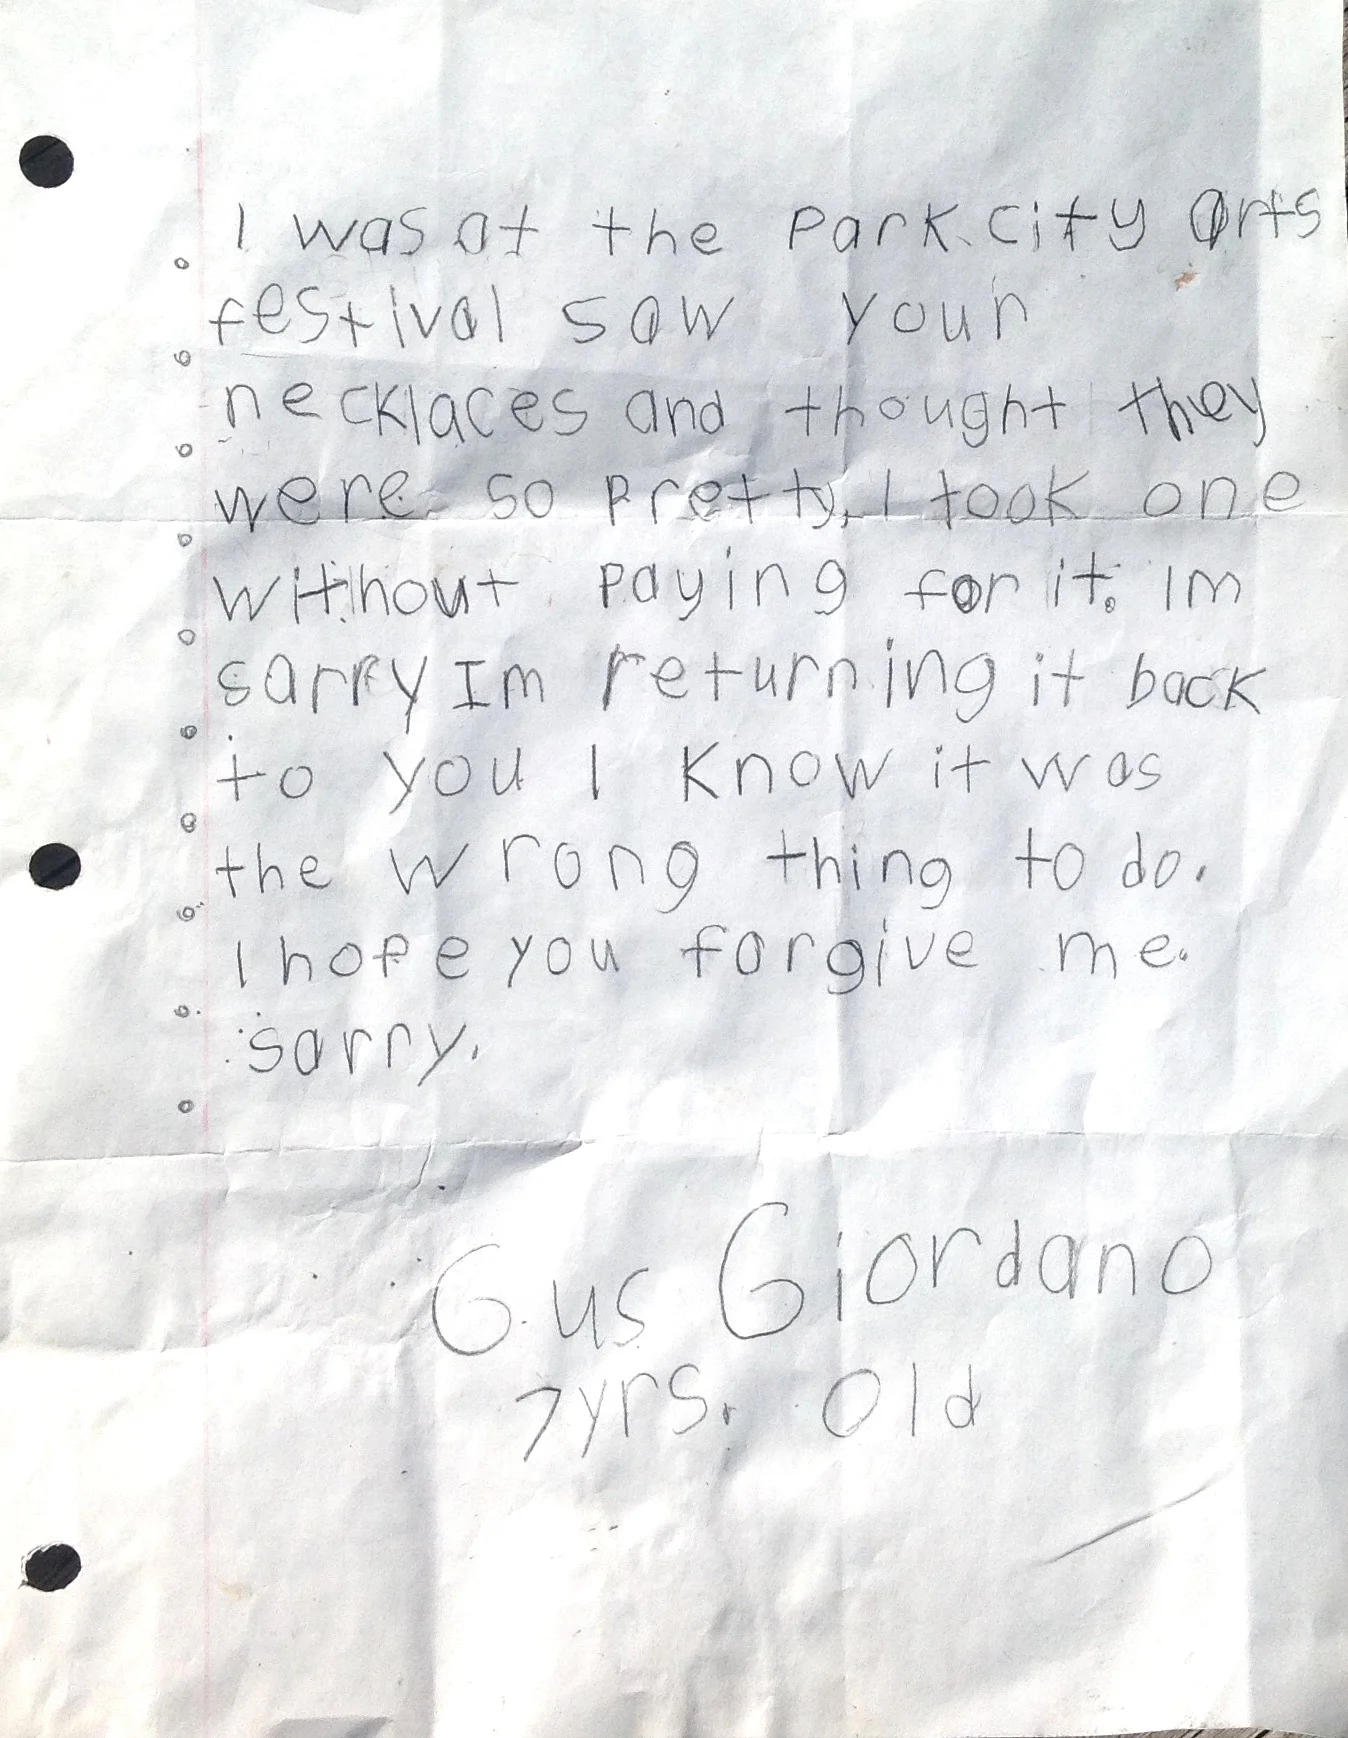 I was at the Park City arts
festival saw your
necklaces and thought they
were so pretty, I took one
without paying for it. Im
sarry Im returning it back
to you I know it was
the wrong thing to do.
I hope you forgive me.
sarry.
Gus Giordano
7yrs. old